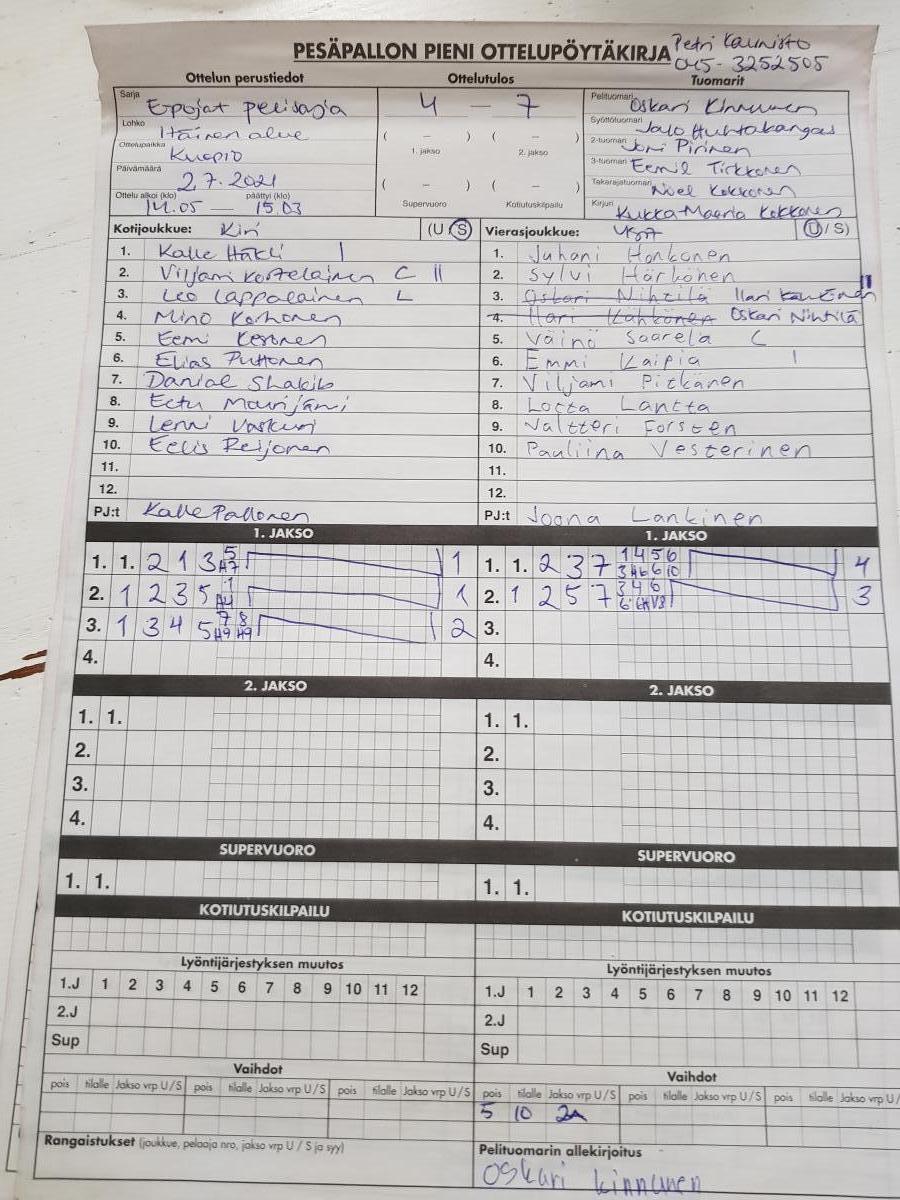 PESÄPALLON PIENI OTTELUPÖYTÄKIRJA
Petri Kaunisto
045-3252505
Ottelun perustiedot Ottelutulos Tuomarit
Sarja Epojat pelisarja
Lohko Itäinen alue
Ottelupaikka Kuopio
Päivämäärä 2.7.2021
Ottelu alkoi (klo) päättyi (klo)
14.05 — 15.03
4 — 7
( – ) ( – )
1. jakso 2. jakso
( – ) ( – )
Supervuoro Kotiutuskilpailu
Pelituomari Oskari Kinnunen
Syöttötuomari Jalo Huhtakangas
2-tuomari Joni Pirinen
3-tuomari Eemil Tirkkonen
Takarajatuomari Noel Kokkonen
Kirjuri Kukka-Maaria Kokkonen
Kotijoukkue: Kiri (U/S) Vierasjoukkue: (U/S)
1. Kalle Häkli I 1. Juhani Honkonen
2. Viljami Kortelainen C II 2. Sylvi Härkönen
3. Leo Lappalainen L 3. Oskari Nihtilä Ilari
4. Mino Korhonen 4. Ilari Kähkönen Oskari Nihtilä
5. Eemi 5. Väinö Saarela C
6. Elias Puttonen 6. Emmi Kaipia I
7. Danial Shakib 7. Viljami Pitkänen
8. Eetu 8. Lotta Lantta
9. Lenni 9. Valtteri Forsten
10. Eelis Reijonen 10. Pauliina Vesterinen
11. 11.
12. 12.
PJ:t Kalle Pallonen PJ:t Joona Lankinen
1. JAKSO 1. JAKSO
1. 1. 2 1 3 5 A7 1 1. 1. 2 3 7 1 4 5 6 4
2. 1 2 3 5 1 A4 1 2. 1 2 5 7 3 4 6 3
3. 1 3 4 5 7 8 A9 A9 2 3.
4. 4.
2. JAKSO 2. JAKSO
1. 1. 1. 1.
2. 2.
3. 3.
4. 4.
SUPERVUORO SUPERVUORO
1. 1. 1. 1.
KOTIUTUSKILPAILU KOTIUTUSKILPAILU
Lyöntijärjestyksen muutos Lyöntijärjestyksen muutos
1.J 1 2 3 4 5 6 7 8 9 10 11 12 1.J 1 2 3 4 5 6 7 8 9 10 11 12
2.J 2.J
Sup Sup
Vaihdot Vaihdot
pois tilalle Jakso vrp U/S pois tilalle Jakso vrp U/S pois tilalle Jakso vrp U/S pois tilalle Jakso vrp U/S pois tilalle Jakso vrp U/S pois tilalle Jakso vrp U/
5 10 2A
Rangaistukset (joukkue, pelaaja nro, jakso vrp U / S ja syy)
Pelituomarin allekirjoitus
Oskari kinnunen